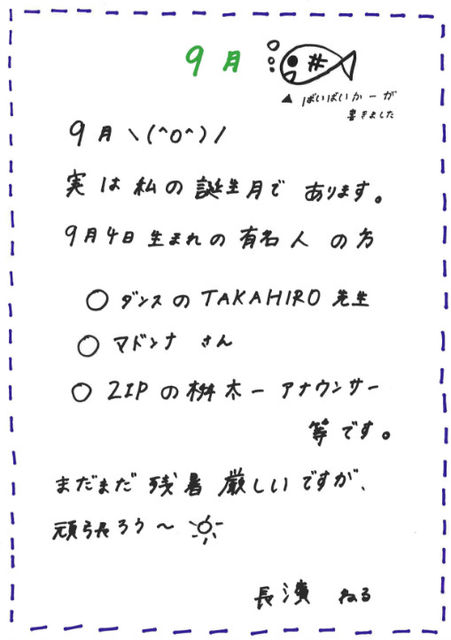 9月
▲ ばいばいかーが
書きました
9月\(^o^)/
実は私の誕生月であります。
9月4日生まれの有名人の方
○ ダンスのTAKAHIRO先生
○ マドンナさん
○ ZIPの桝太一アナウンサー
等です。
まだまだ残暑厳しいですが、
頑張ろう〜
長濱 ねる